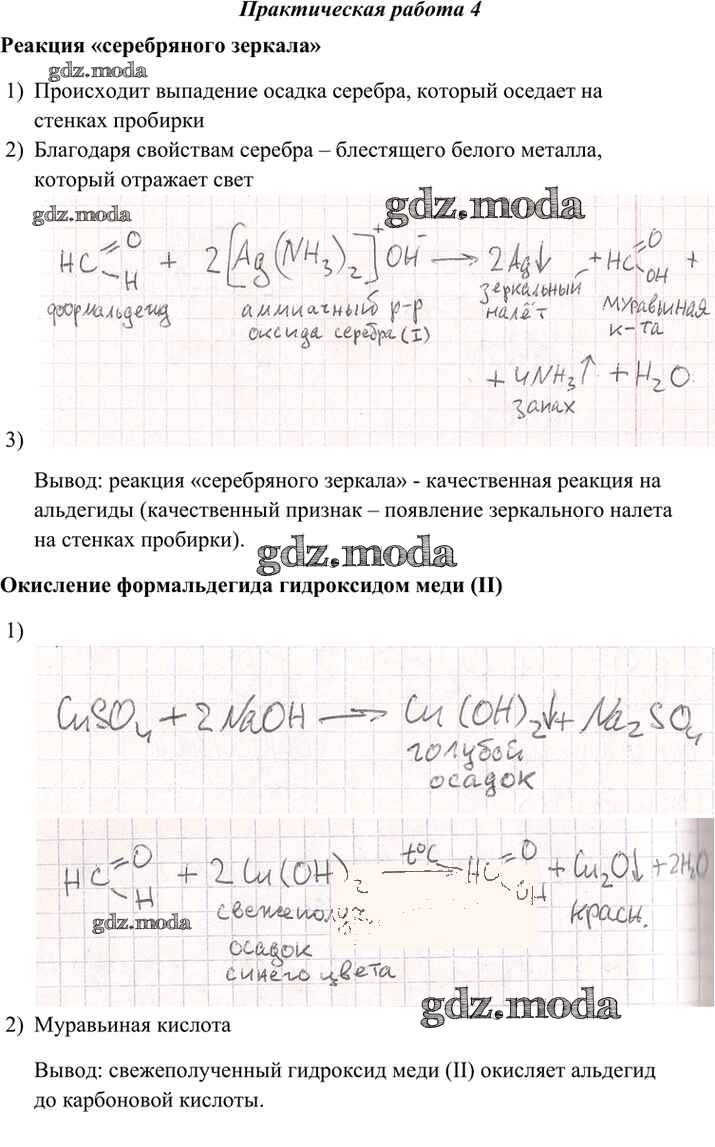 Практическая работа 4
Реакция «серебряного зеркала»
gdz.moda
1) Происходит выпадение осадка серебра, который оседает на
стенках пробирки
2) Благодаря свойствам серебра – блестящего белого металла,
который отражает свет
gdz.moda
gdz.moda
HC=O–H + 2[Ag(NH₃)₂]⁺OH⁻ → 2Ag↓ + HC=O–OH +
формальдегид аммиачный р-р зеркальный муравьиная
оксида серебра (I) налёт к-та
+ 4NH₃↑ + H₂O
запах
3)
Вывод: реакция «серебряного зеркала» - качественная реакция на
альдегиды (качественный признак – появление зеркального налета
на стенках пробирки).
gdz.moda
Окисление формальдегида гидроксидом меди (II)
1)
CuSO₄ + 2NaOH → Cu(OH)₂↓ + Na₂SO₄
голубой
осадок
HC=O–H + 2Cu(OH)₂ t°C → HC=O–OH + Cu₂O↓ + 2H₂O
свежеполуч красн.
gdz.moda
осадок
синего цвета
gdz.moda
2) Муравьиная кислота
Вывод: свежеполученный гидроксид меди (II) окисляет альдегид
до карбоновой кислоты.